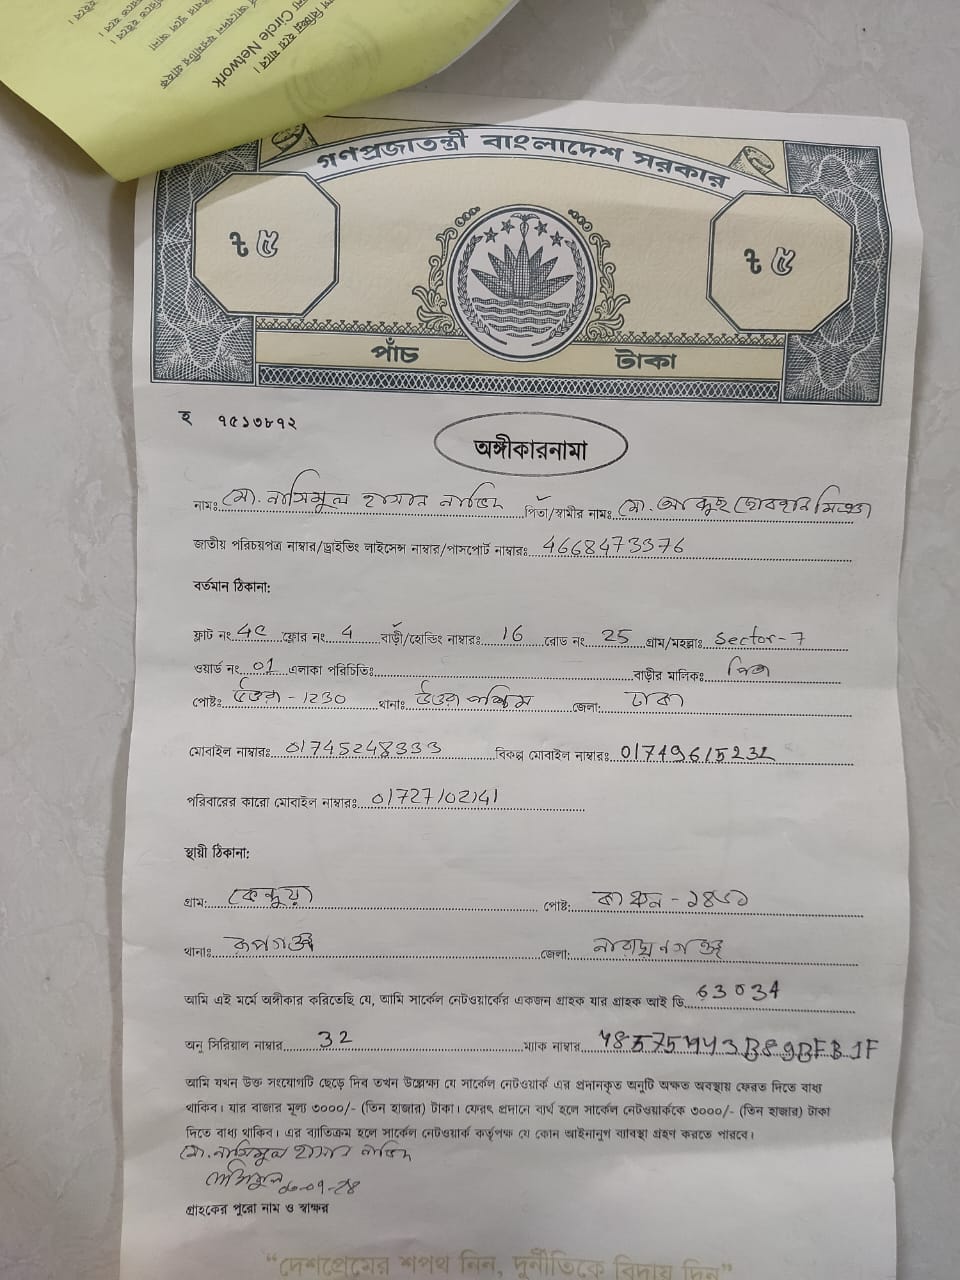 Circle Network
গণপ্রজাতন্ত্রী বাংলাদেশ সরকার
৳ ৫ ৳ ৫
পাঁচ টাকা
হ ৭৫১৩৮৭২
অঙ্গীকারনামা
নামঃ মো. নাসিমুল হাসান নাভিদ পিতা/স্বামীর নামঃ মো.
জাতীয় পরিচয়পত্র নাম্বার/ড্রাইভিং লাইসেন্স নাম্বার/পাসপোর্ট নাম্বারঃ 4668473376
বর্তমান ঠিকানা:
ফ্লাট নং 4C ফ্লোর নং 4 বাড়ী/হোল্ডিং নাম্বারঃ 16 রোড নং 25 গ্রাম/মহল্লাঃ Sector-7
ওয়ার্ড নং 01 এলাকা পরিচিতিঃ বাড়ীর মালিকঃ
পোষ্টঃ উত্তরা - 1230 থানাঃ উত্তরা পশ্চিম জেলা: ঢাকা
মোবাইল নাম্বারঃ 01745248333 বিকল্প মোবাইল নাম্বারঃ 01749615232
পরিবারের কারো মোবাইল নাম্বারঃ 01727102141
স্থায়ী ঠিকানা:
গ্রাম: কেন্দুয়া পোষ্ট: কাঞ্চন - ১৪৬১
থানাঃ রূপগঞ্জ জেলা: নারায়নগঞ্জ
আমি এই মর্মে অঙ্গীকার করিতেছি যে, আমি সার্কেল নেটওয়ার্কের একজন গ্রাহক যার গ্রাহক আই ডি 63034
অনু সিরিয়াল নাম্বার 32 ম্যাক নাম্বার
আমি যখন উক্ত সংযোগটি ছেড়ে দিব তখন উল্লেক্ষ্য যে সার্কেল নেটওয়ার্ক এর প্রদানকৃত অনুটি অক্ষত অবস্থায় ফেরত দিতে বাধ্য
থাকিব। যার বাজার মূল্য ৩০০০/- (তিন হাজার) টাকা। ফেরৎ প্রদানে ব্যর্থ হলে সার্কেল নেটওয়ার্ককে ৩০০০/- (তিন হাজার) টাকা
দিতে বাধ্য থাকিব। এর ব্যতিক্রম হলে সার্কেল নেটওয়ার্ক কর্তৃপক্ষ যে কোন আইনানুগ ব্যাবস্থা গ্রহণ করতে পারবে।
মো. নাসিমুল হাসান নাভিদ
গ্রাহকের পুরো নাম ও স্বাক্ষর
“দেশপ্রেমের শপথ নিন, দুর্নীতিকে বিদায় দিন”